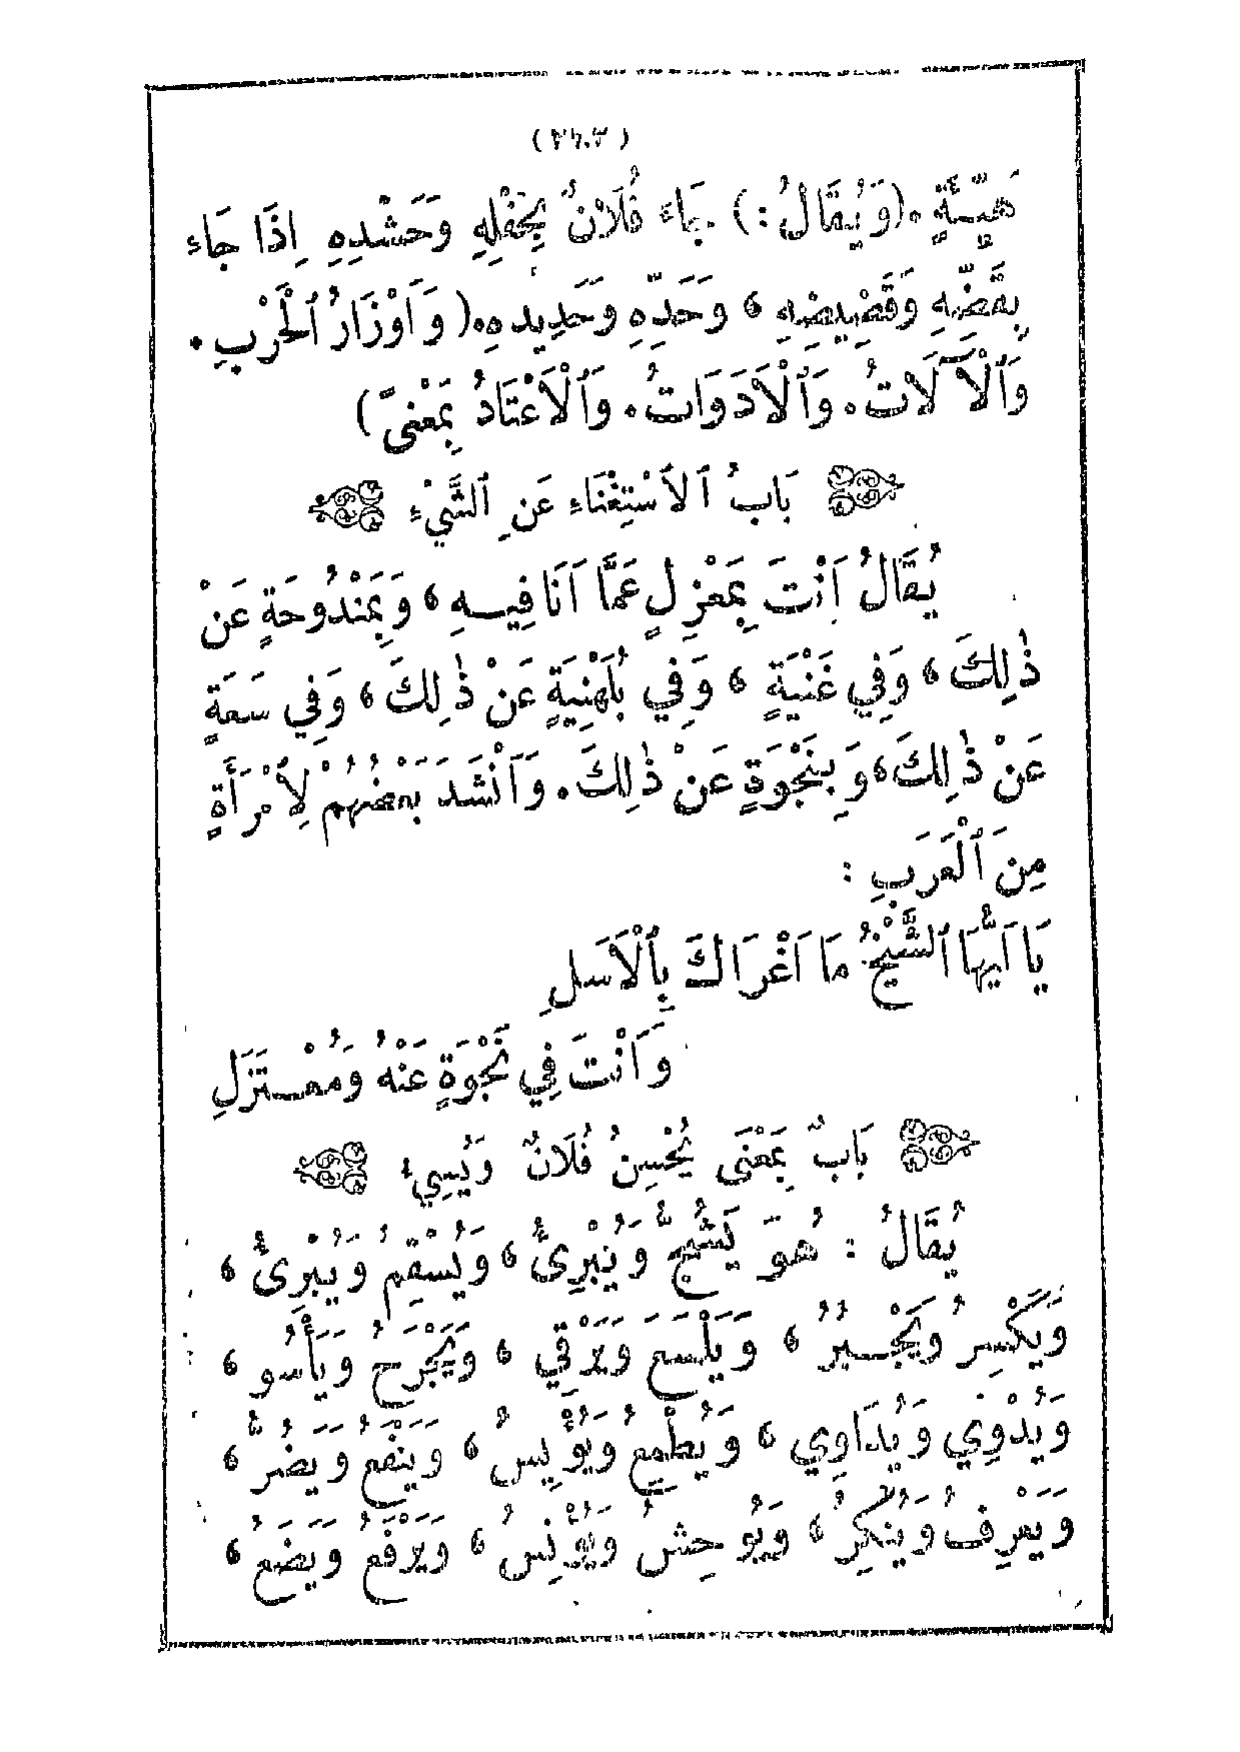 هَيِّئَةٍ . (وَيُقَالُ:) جَاءَ فُلَانٌ بِحَفْلِهِ وَحَشْدِهِ اِذَا جَاءَ
بِقَضِّهِ وَقَضِيضِهِ ، وَحَدِّهِ وَحَدِيدِهِ. (وَاَوْزَارُ ٱلْحَرْبِ .
وَٱلْآلَاتُ. وَٱلْاَدَوَاتُ. وَٱلْاَعْتَادُ بِمَعْنىً)
بَابُ ٱلِاسْتِغْنَاءِ عَنِ ٱلشَّيْءِ
يُقَالُ اَنْتَ بِمَعْزِلٍ عَمَّا اَنَا فِيهِ ، وَبِمَنْدُوحَةٍ عَنْ
ذٰلِكَ ، وَفِي غَنْيَةٍ ، وَفِي بُلَهْنِيَةٍ عَنْ ذٰلِكَ ، وَفِي سَعَةٍ
عَنْ ذٰلِكَ ، وَبِنَجْوَةٍ عَنْ ذٰلِكَ. وَاَنْشَدَ بَعْضُهُمْ لِٱمْرَأَةٍ
مِنَ ٱلْعَرَبِ :
يَا اَيُّهَا ٱلشَّيْخُ مَا اَغْرَاكَ بِٱلْاَسَلِ
وَاَنْتَ فِي نَجْوَةٍ عَنْهُ وَمُعْتَزَلِ
بَابٌ بِمَعْنَى يُحْسِنُ فُلَانٌ وَيُسِيءُ
يُقَالُ : هُوَ يَشُجُّ وَيُبْرِئُ ، وَيُسْقِمُ وَيُبْرِئُ ،
وَيَكْسِرُ وَيَجْبُرُ ، وَيَلْسَعُ وَيَرْقِي ، وَيَجْرَحُ وَيَأْسُو ،
وَيُدْوِي وَيُدَاوِي ، وَيُطْمِعُ وَيُؤْيِسُ ، وَيَنْفَعُ وَيَضُرُّ ،
وَيَعْرِفُ وَيُنْكِرُ ، وَيُوحِشُ وَيُؤْنِسُ ، وَيَرْفَعُ وَيَضَعُ ،